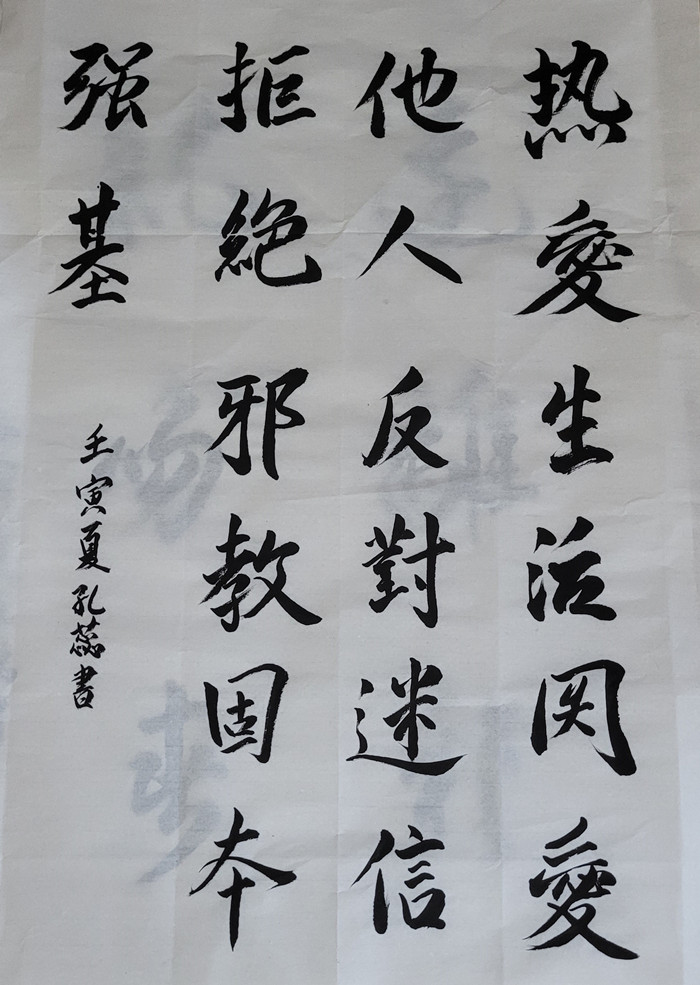 热愛生活関愛
他人反對迷信
拒絕邪教固本
强基
壬寅夏孔蕊書